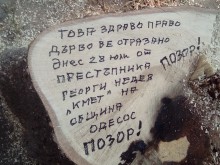 ТОВА ЗДРАВО ПРАВО
ДЪРВО БЕ ОТРЯЗАНО
ДНЕС 28 ЮЛИ ОТ
ПРЕСТЪПНИКА
ГЕОРГИ НЕДЕВ
"КМЕТ" НА
ОБЩИНА
ОДЕСОС
ПОЗОР!
ПОЗОР!